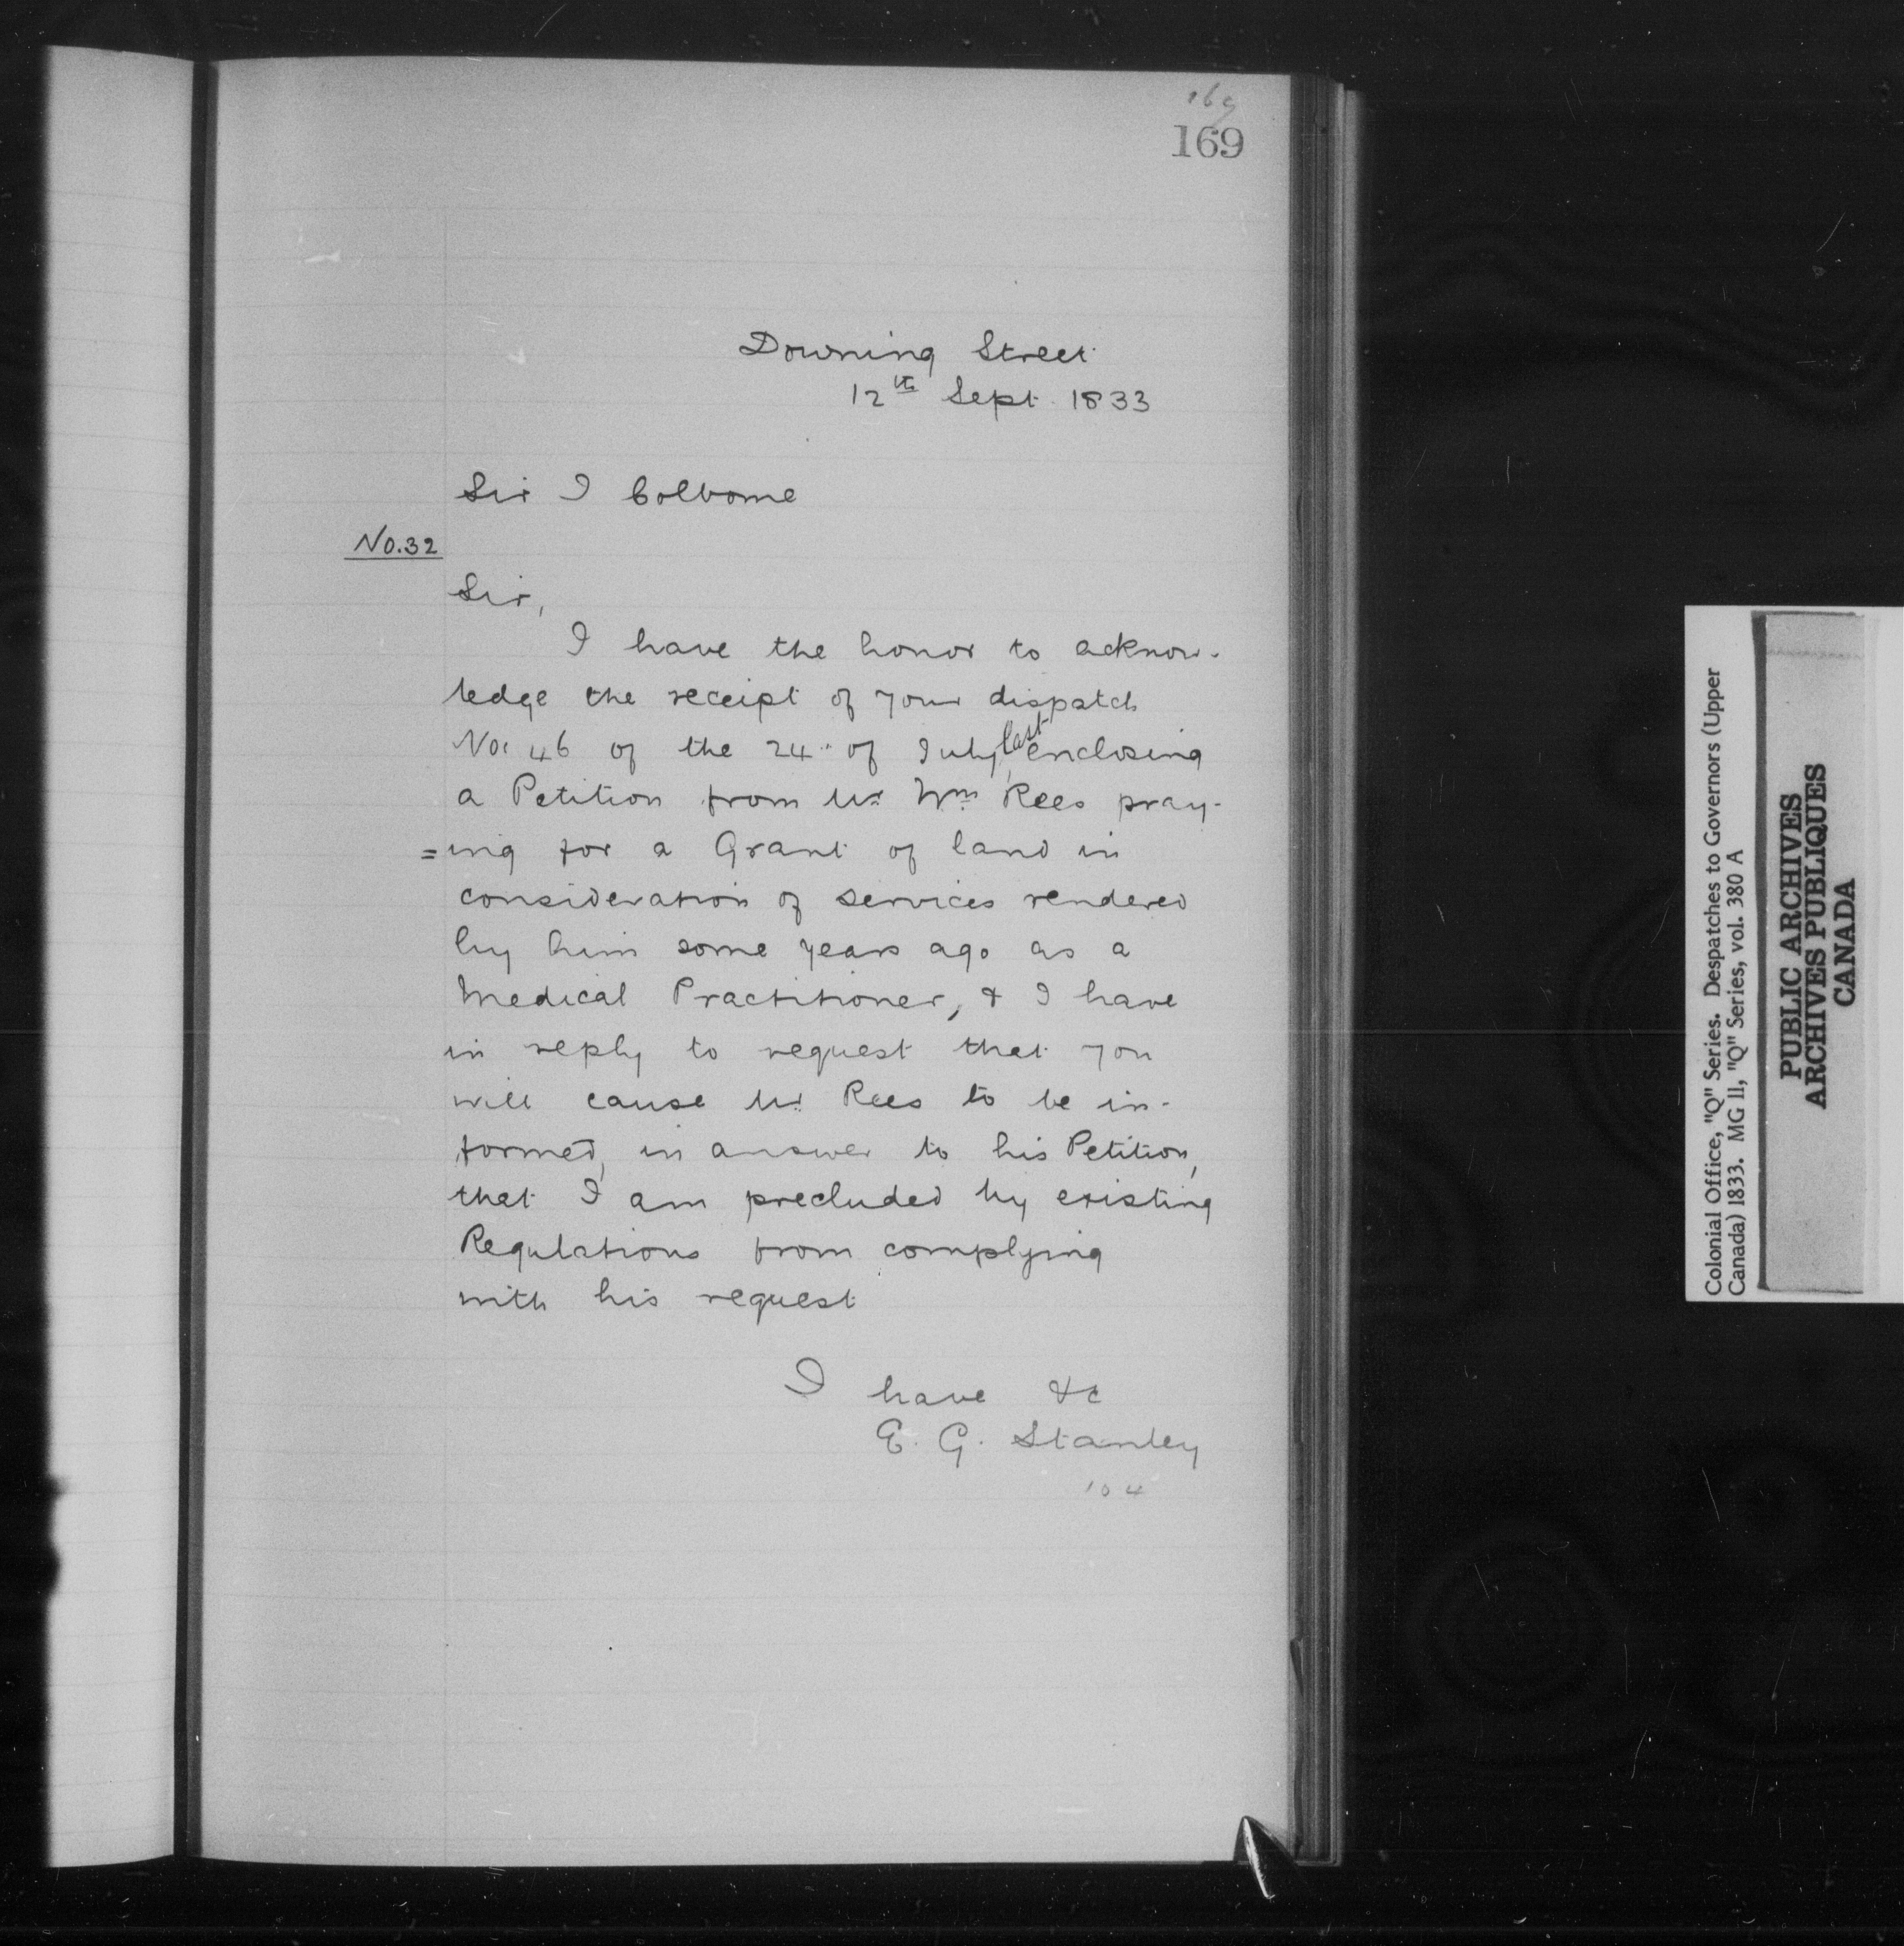 169
169
Downing Street
12th Sept. 1833
Sir J Colborne
No. 32
Sir,
I have the honor to acknow-
ledge the receipt of your dispatch
No. 46 of the 24th of July last enclosing
a Petition from Mr Wm Rees pray-
=ing for a Grant of land in
consideration of services rendered
by him some years ago as a
Medical Practitioner, & I have
in reply to request that you
will cause Mr Rees to be in-
formed, in answer to his Petition,
that I am precluded by existing
Regulations from complying
with his request
I have &c
E. G. Stanley
104
Colonial Office, "Q" Series. Despatches to Governors (Upper
Canada) 1833. MG 11, "Q" Series, vol. 380 A
PUBLIC ARCHIVES
ARCHIVES PUBLIQUES
CANADA